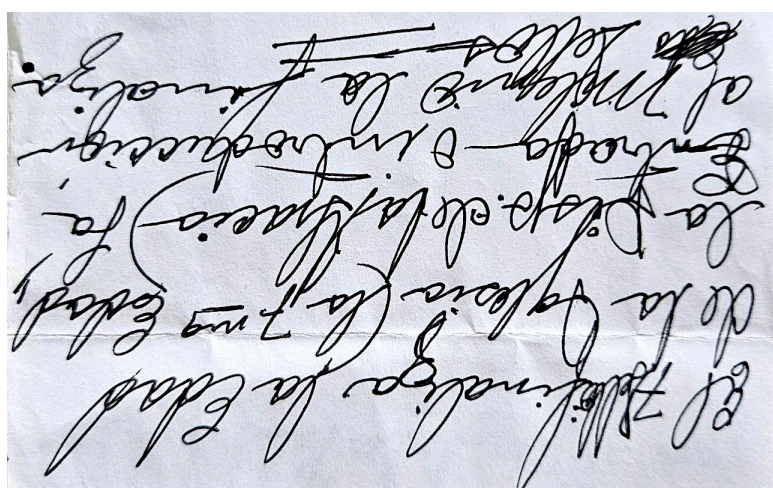 El 7 Sello finaliza la Edad
de la Iglesia (la 7ma Edad,
la Disp. de la Gracia) La
Entrada o introducción
al Milenio la finaliza
Sellos